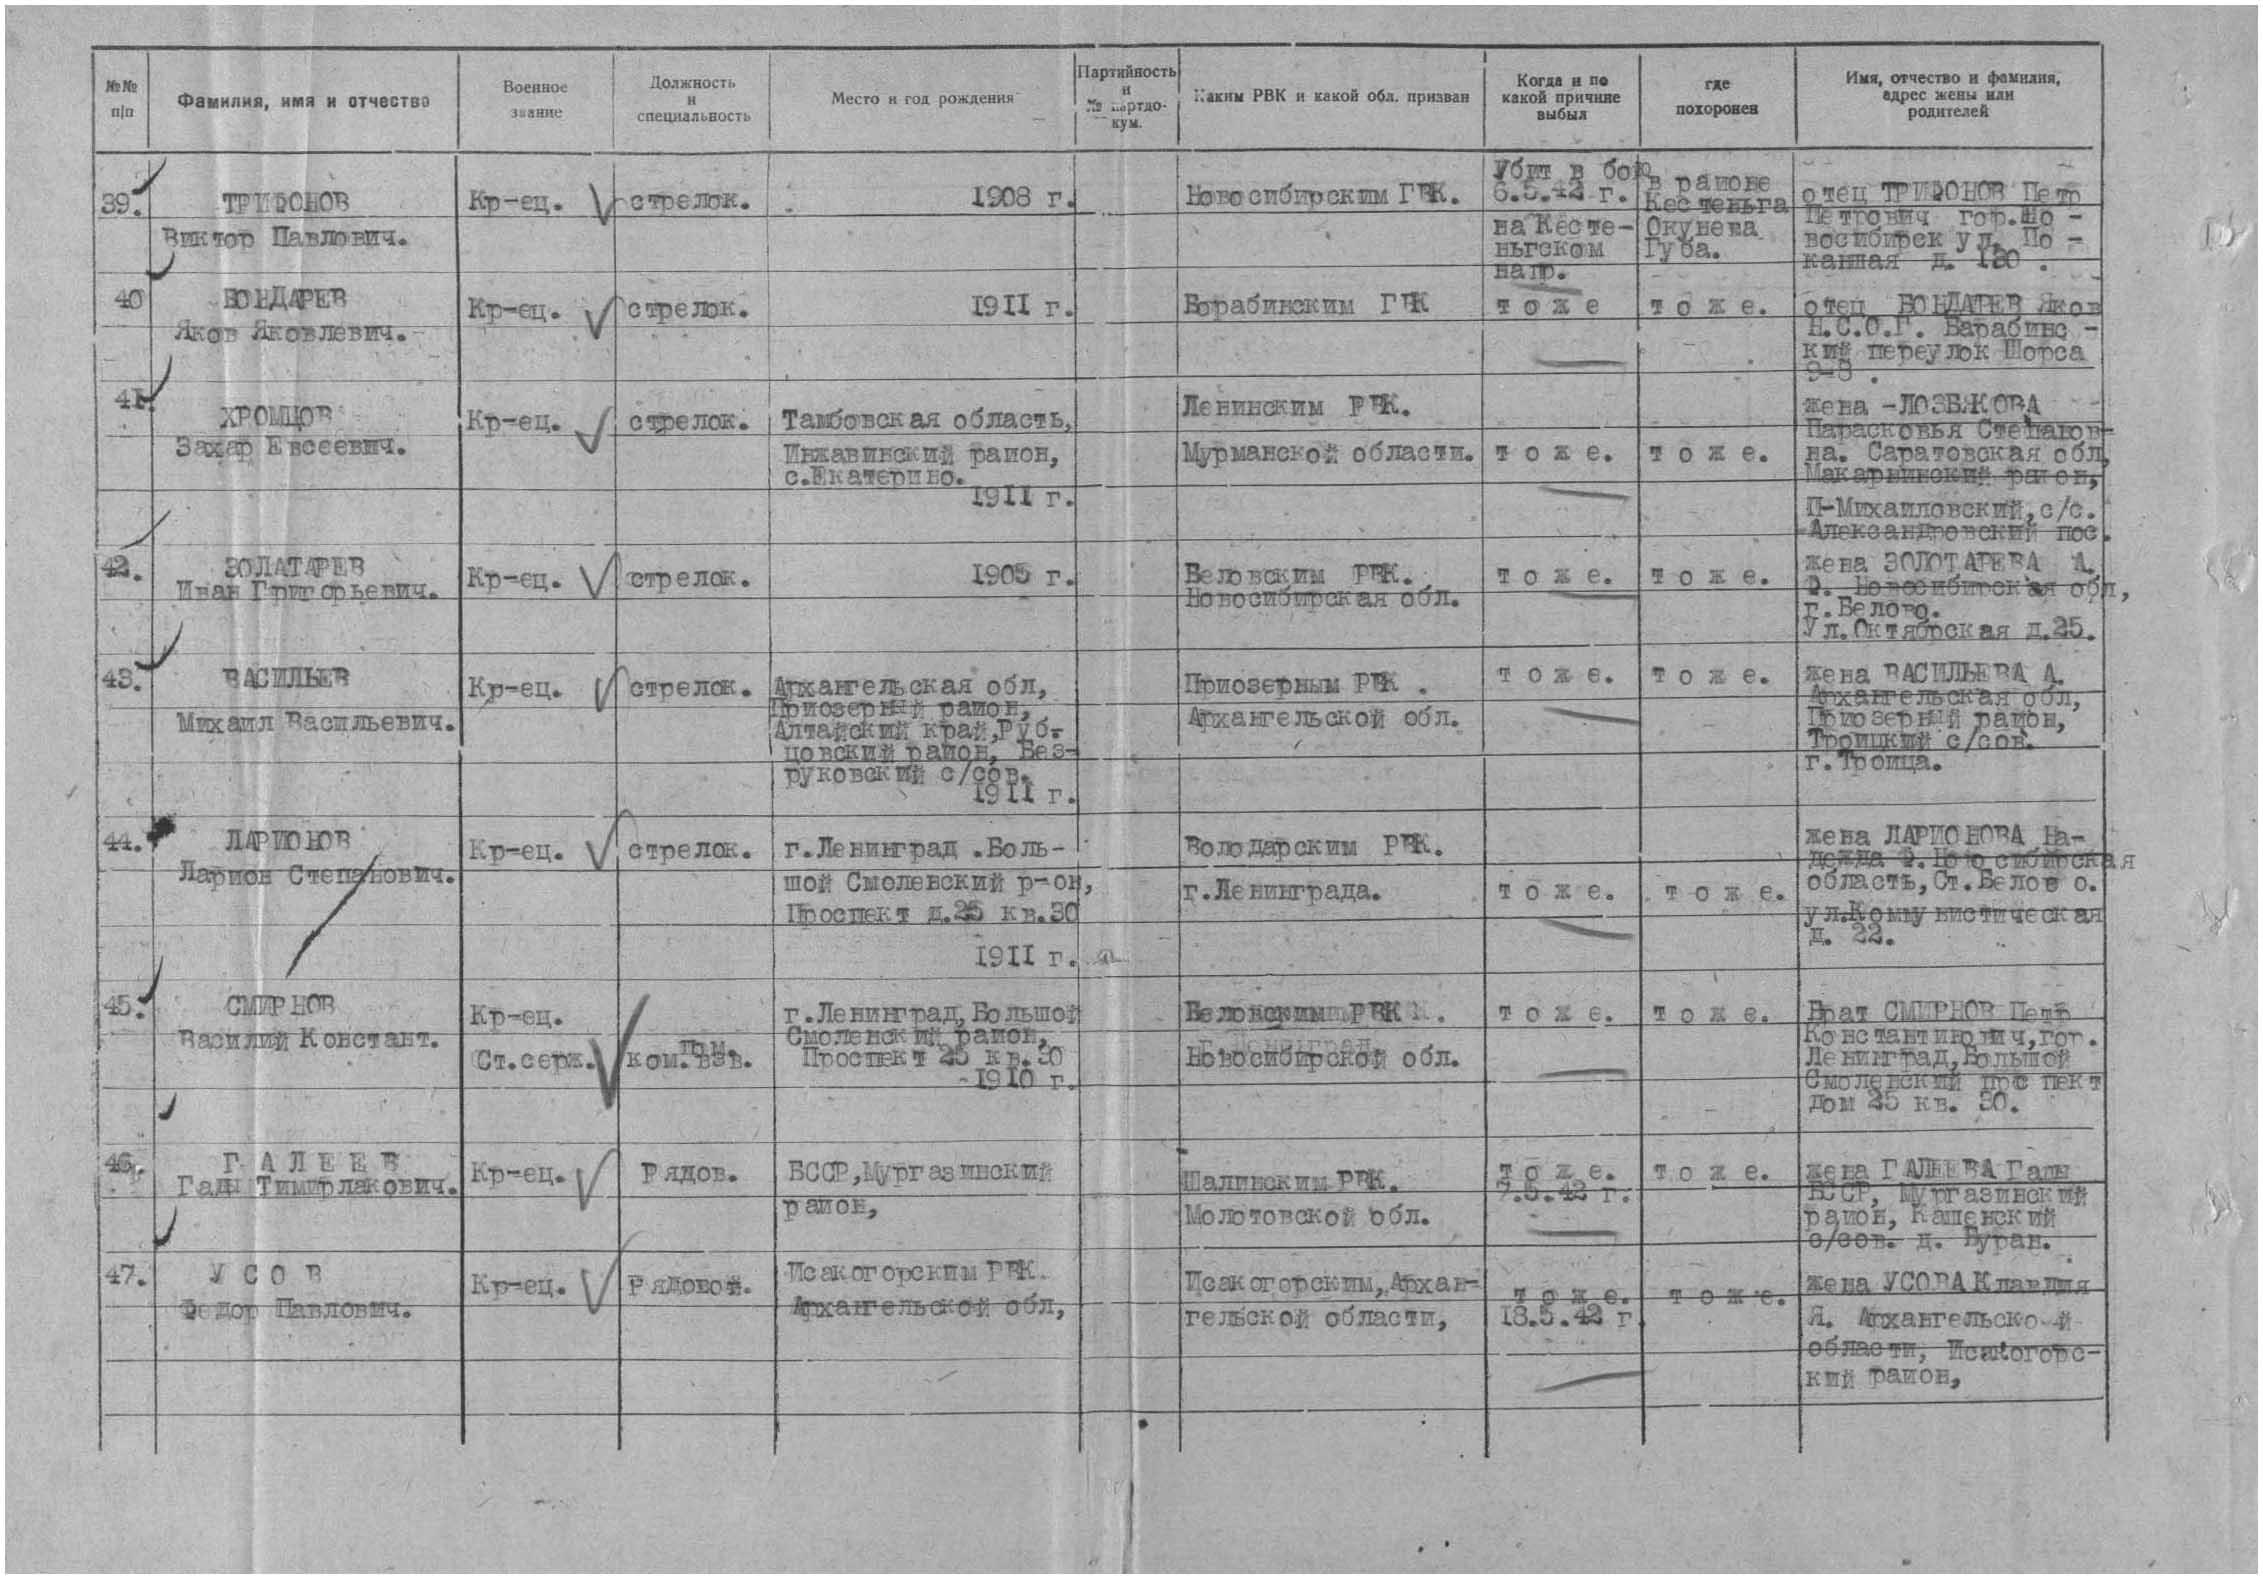 №№ п/п
Фамилия, имя и отчество
Военное звание
Должность и специальность
Место и год рождения
Партийность и № партдо-кум.
Каким РВК и какой обл. призван
Когда и по какой причине выбыл
где похоронен
Имя, отчество и фамилия, адрес жены или родителей
39.
ТРИФОНОВ
Виктор Павлович.
Кр-ец.
стрелок.
1908 г.
Новосибирским ГВК.
Убит в бою
6.5.42 г.
на Кесте-
ньгском
напр.
в районе
Кестеньга
Окунева
Губа.
отец ТРИФОНОВ Петр
Петрович гор.Но -
восибирск ул. По -
д. 120 .
40
БОНДАРЕВ
Яков Яковлевич.
Кр-ец.
стрелок.
1911 г.
Борабинским ГВК
т о ж е
т о ж е.
отец БОНДАРЕВ Яков
Н.С.О.Г. Барабинс -
кий переулок Шорса
9-8 .
41.
ХРОМЦОВ
Захар Евсеевич.
Кр-ец.
стрелок.
Тамбовская область,
Инжавинский район,
с.Екатерино.
1911 г.
Ленинским РВК.
Мурманской области.
т о ж е.
т о ж е.
жена -ЛОЗБЯКОВА
Парасковья Степанов-
на. Саратовская обл,
район,
П-Михайловский, с/с.
Александровский пос.
42.
ЗОЛАТАРЕВ
Иван Григорьевич.
Кр-ец.
стрелок.
1905 г.
Беловским РВК.
Новосибирская обл.
т о ж е.
т о ж е.
жена ЗОЛОТАРЕВА А.
Ф. Новосибирская обл,
г.Белово.
Ул.Октябрская д.25.
43.
ВАСИЛЬЕВ
Михаил Васильевич.
Кр-ец.
стрелок.
Архангельская обл,
Приозерный район,
Алтайский край,Руб-
цовский район, Без-
руковский с/сов.
1911 г.
Приозерным РВК .
Архангельской обл.
т о ж е.
т о ж е.
жена ВАСИЛЬЕВА А.
Архангельская обл,
Приозерный район,
Троицкий с/сов.
г.Троица.
44.
ЛАРИОНОВ
Ларион Степанович.
Кр-ец.
стрелок.
г.Ленинград .Боль-
шой Смоленский р-он,
Проспект д.25 кв.30
1911 г.
Володарским РВК.
г.Ленинграда.
т о ж е.
т о ж е.
жена ЛАРИОНОВА На-
дежда Ф. Новосибирская
область,Ст.Белово.
ул.Коммунистическая
д. 22.
45.
СМИРНОВ
Василий Констант.
Кр-ец.
Ст.серж.
пом.
ком.взв.
г.Ленинград,Большой
Смоленский район,
Проспект 25 кв.30
1910 г.
Беловским РВК .
Новосибирской обл.
т о ж е.
т о ж е.
Брат СМИРНОВ Петр
Константинович,гор.
Ленинград,Большой
Смоленский проспект
дом 25 кв. 30.
46.
Г А Л Е Е В
Гады Тимирлакович.
Кр-ец.
Рядов.
БССР,Мургазинский
район,
Шалинским РВК.
Молотовской обл.
т о ж е.
7.5.42 г.
т о ж е.
жена ГАЛЕЕВА Гады
БССР, Мургазинский
район, Кашенский
с/сов. д. Буран.
47.
У С О В
Федор Павлович.
Кр-ец.
Рядовой.
Исакогорским РВК.
Архангельской обл,
Исакогорским, Архан-
гельской области,
т о ж е.
18.5.42 г
т о ж е.
жена УСОВА Клавдия
Я. Архангельской
области, Исакогорс-
кий район,